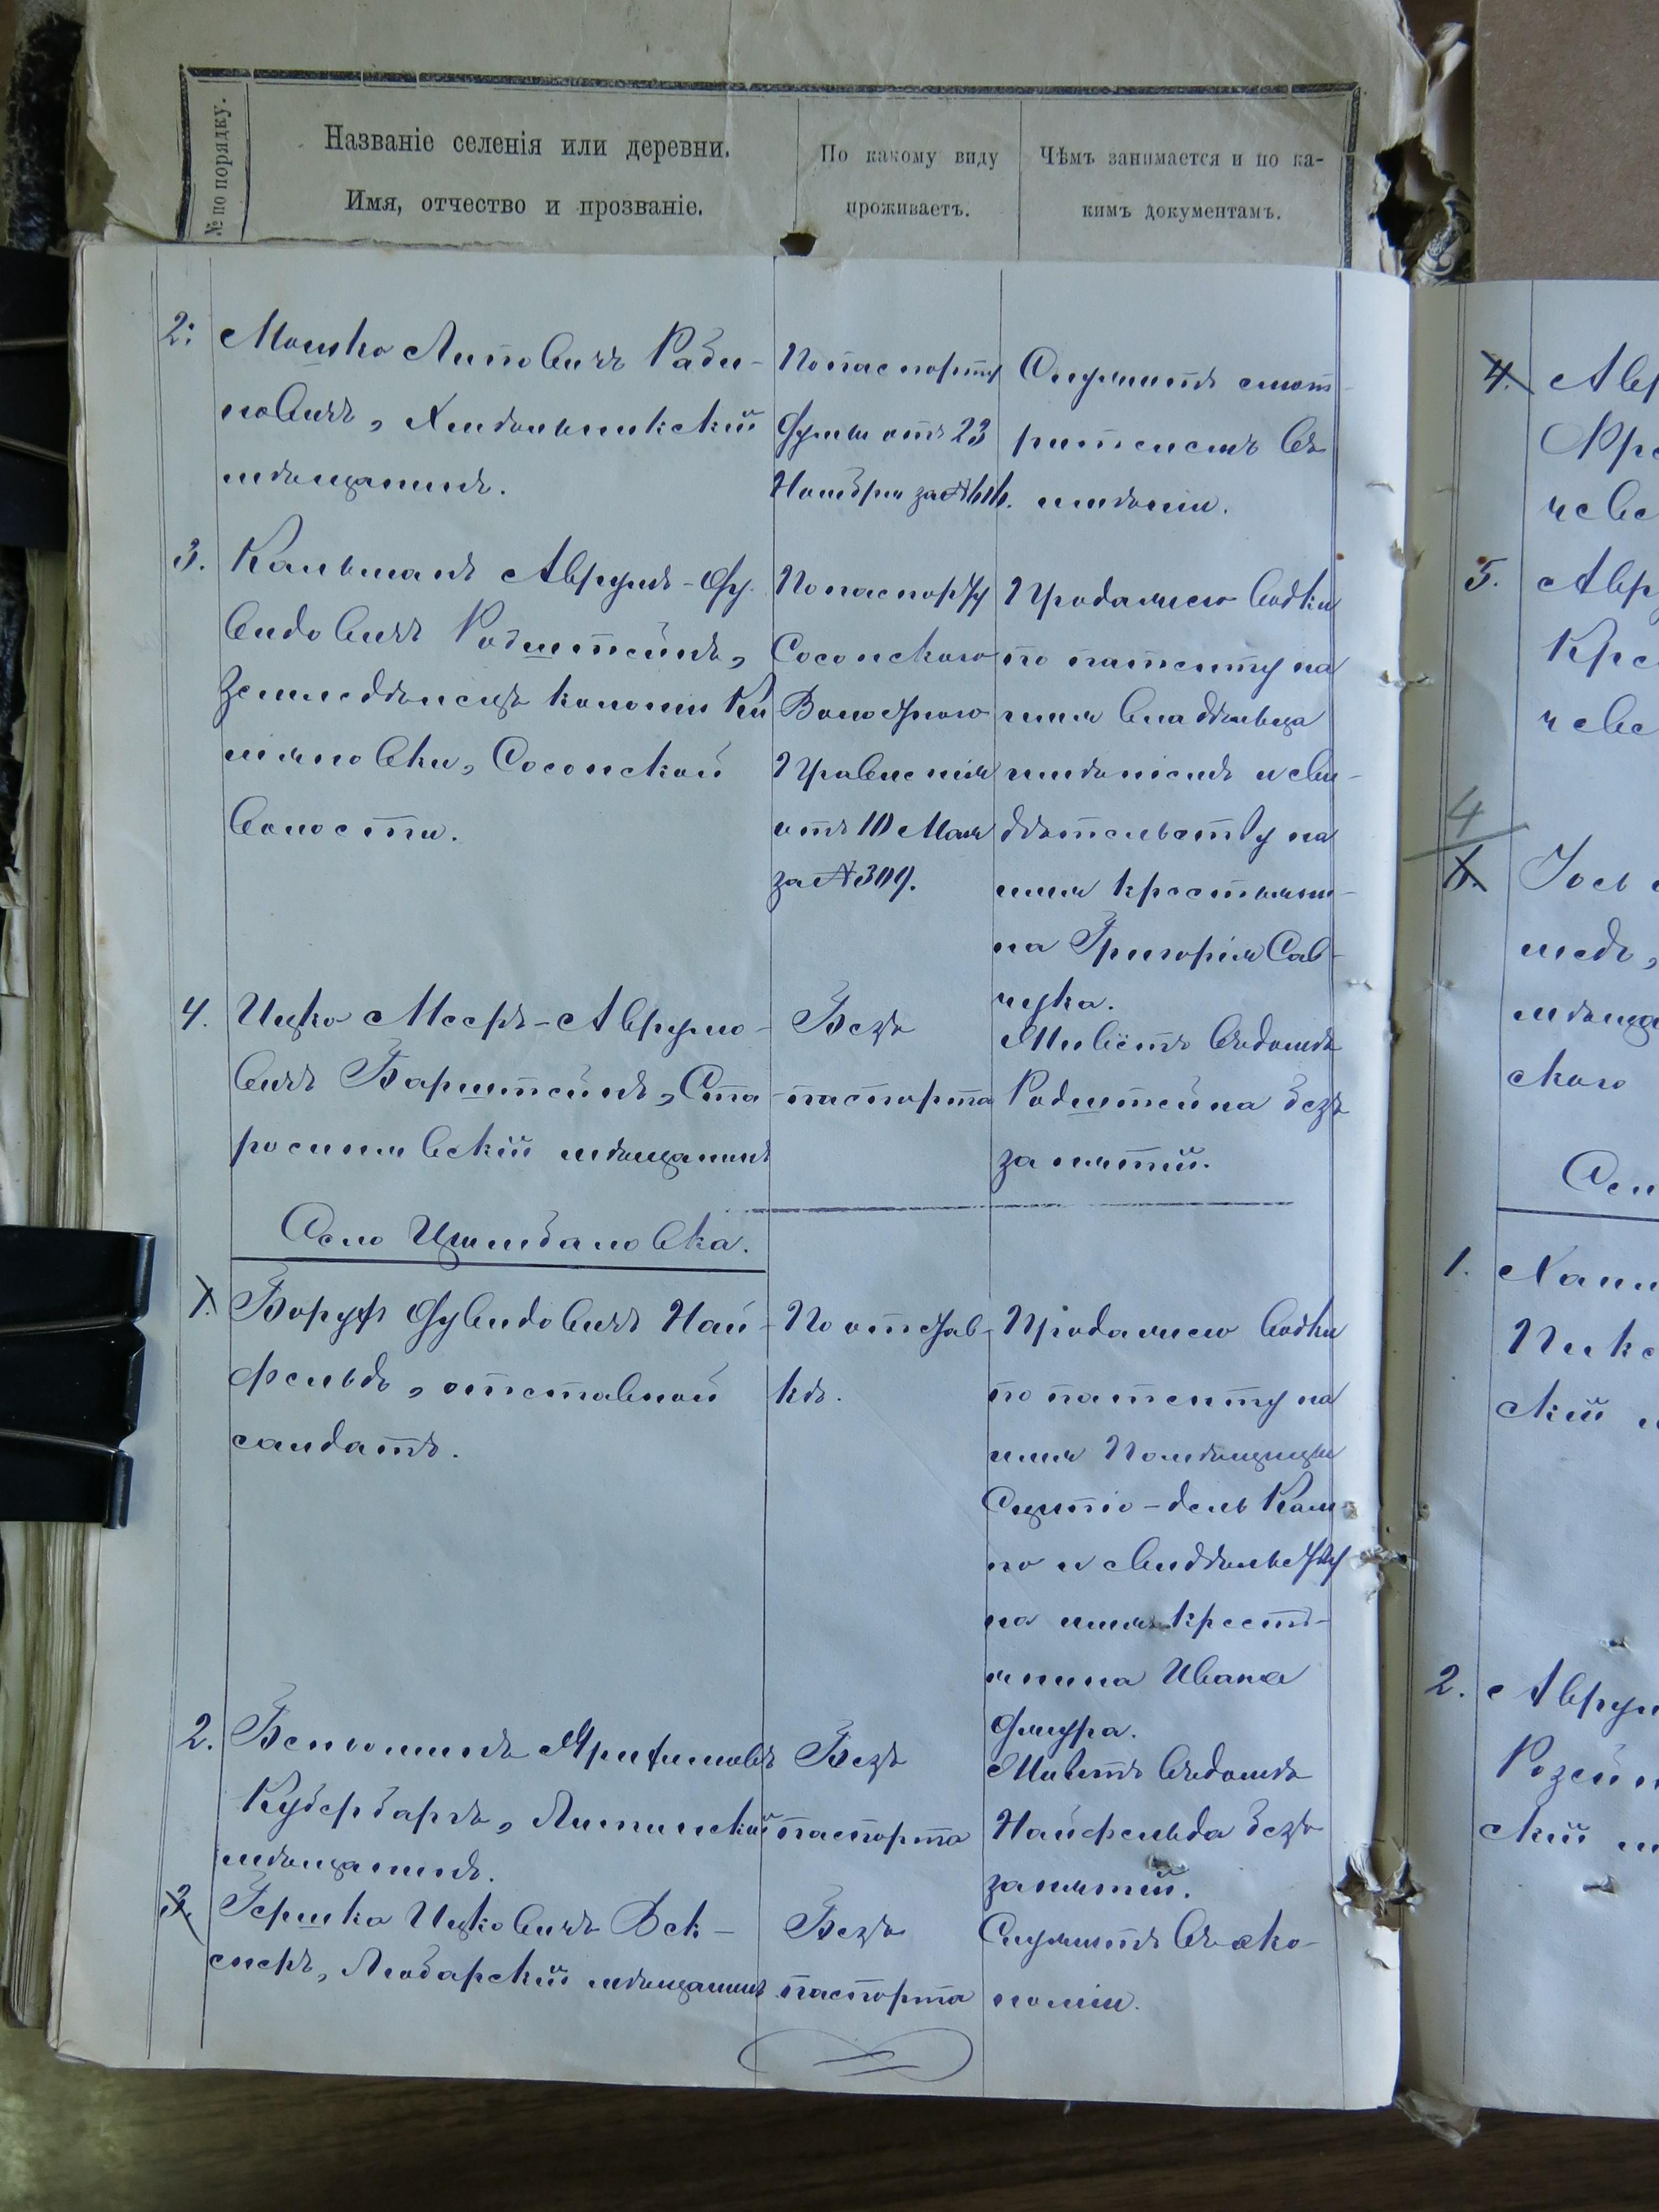 № по порядку.
Названіе селенія или деревни.
Имя, отчество и прозваніе.
По какому виду
проживаетъ.
Чѣмъ занимается и по ка-
кимъ документамъ.
2.
Мошко Липовичъ Раби-
новичъ, Хмѣльникскій
мѣщанинъ.
По паспорту
Думы отъ 23
Ноября за №
Служитъ смот-
рителемъ въ
имѣніи.
3.
Кальманъ Аврумъ-Ду-
видовичъ Родштейнъ,
земледѣлецъ колоніи Ку
ляновки, Сосонской
волости.
По паспорту
Сосонского
Волостного
Правленія
отъ 10 Мая
за № 309.
Продажею водки
по патенту на
имя владѣльца
имѣніемъ и сви-
дѣтельству на
имя крестьяни-
на Григорія Сав-
чука.
4.
Ицко Мееръ-Аврумо-
вичъ Барштейнъ, Ста-
росинявскій мѣщанинъ
Безъ
паспорта
Живётъ въ домѣ
Родштейна безъ
занятій.
Село Цымбаловка.
1.
Борух Дувидовичъ Най-
фельдъ, отставной
салдатъ.
По отстав-
кѣ.
Продажею водки
по патенту на
имя Помѣщицы
Сцитіо-дель Кам-
по и свидѣльству
на имя кресть-
янина Ивана
2.
Беньоминъ
Кубербаръ, Литинскій
мѣщанинъ.
Безъ
паспорта
Живетъ въ домѣ
Найфельда безъ
занятій.
3.
Гершка Ицковичъ Век-
слеръ, Любарскій мѣщанинъ
Безъ
паспорта
Служитъ въ эко-
номіи.
4.
Авр
Кре
чеве
5.
Авр
Кре
чеве
4
6.
Іось
медъ,
мѣща
ского
Сел
1.
Хаим
Пике
скій
2.
Аврум
Розейн
скій м